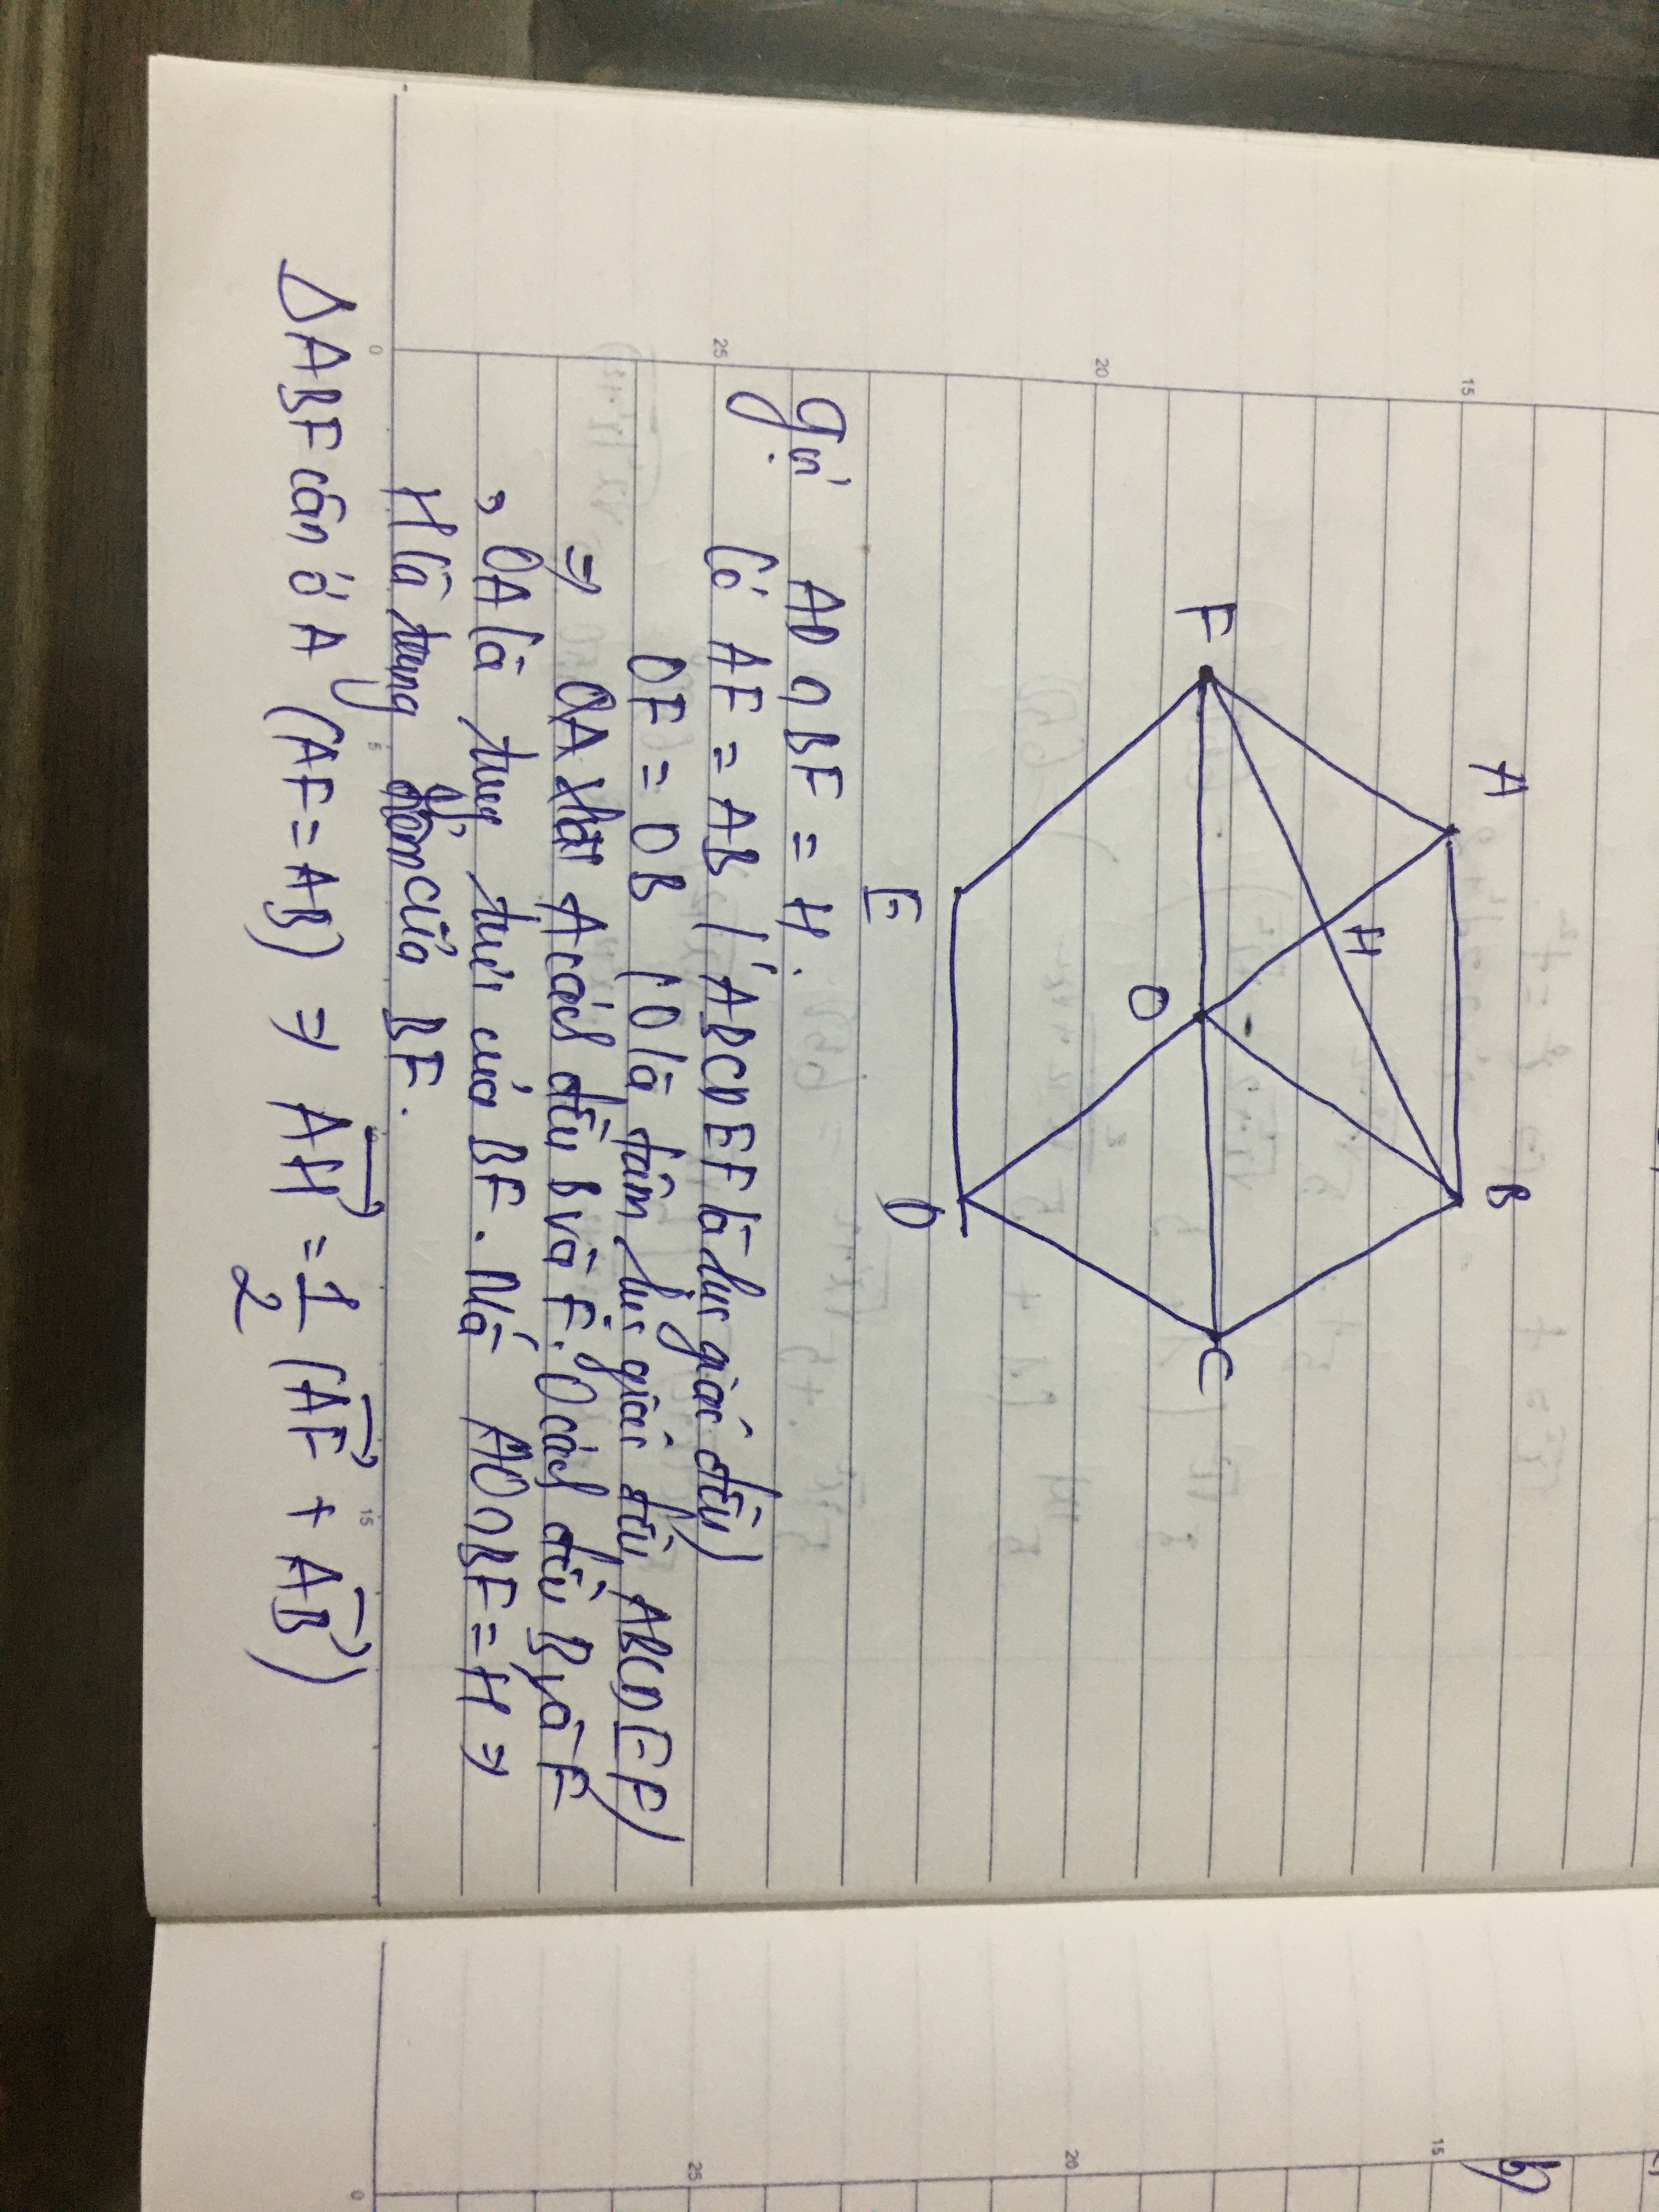 A
B
H
F
O
C
E
D
Gọi AD ∩ BF = H.
Có AF = AB (ABCDEF là lục giác đều)
OF = OB (O là tâm lục giác đều ABCDEF)
⇒ A cách đều B và F. O cách đều B và F
, OA là trung trực của BF. Mà AO ∩ BF = H ⇒
H là trung điểm của BF.
ΔABF cân ở A (AF = AB) ⇒ \overrightarrow{AH} = \frac{1}{2} (\overrightarrow{AF} + \overrightarrow{AB})
15
20
25
0
5
15
15
20
25
0